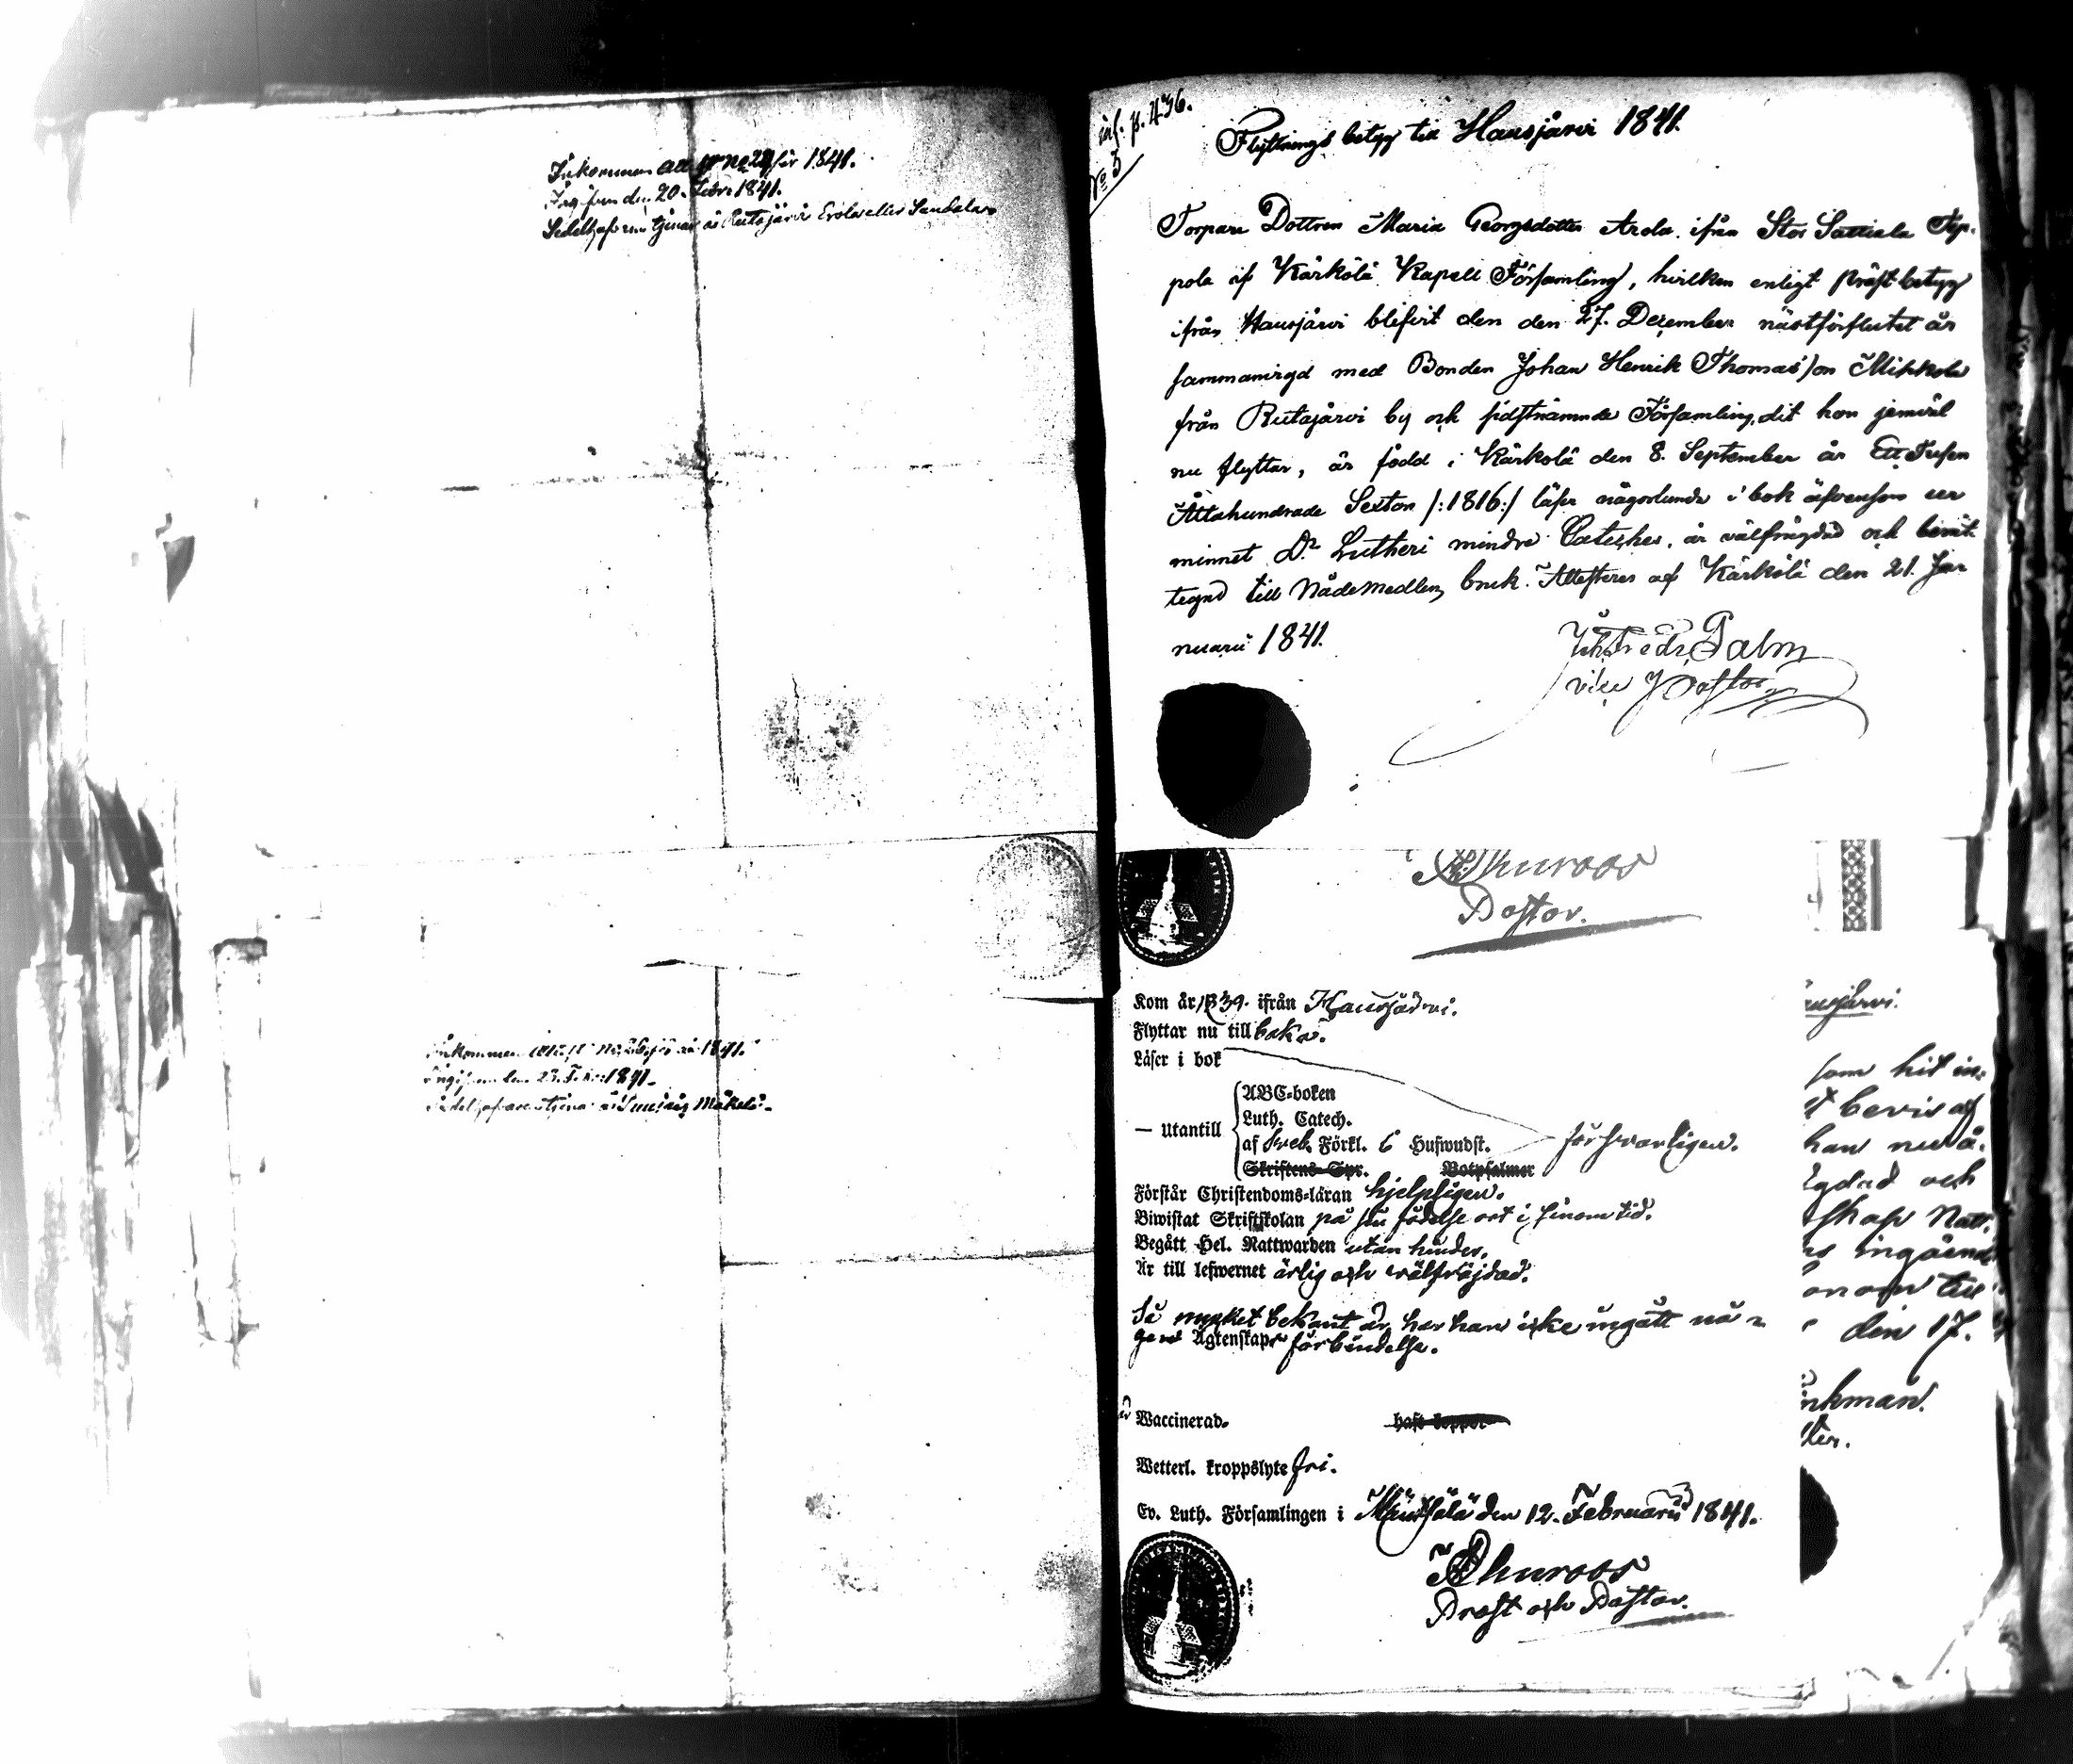 Inkommen att för 1841.
den 20. Febr 1841.
Sedelhafvaren tjenar å Rutajärvi Erola eller Sandelar
Inkommen 1841.
den 23. Febr 1841.
Sedelhafvaren tjenar Mäkelä.
inf. p. 436.
No 3
Flyttnings betyg till Hausjärvi 1841.
Torpare Dottren Maria Georgsdotter Arola ifrån Stor Sattiala Sep-
pola af Kärkölä Kapell Församling, hvilken enligt Präst betyg
ifrån Hausjärvi blifvit den den 27. December nästförflutet år
sammanvigd med Bonden Johan Henrik Thomasson Mikkola
från Rutajärvi by och sidstnämnde Församling, dit hon jemväl
nu flyttar, är född i Kärkölä den 8. September år Ett Tusen
Åttahundrade Sexton /:1816:/ läser någorlunda i bok äfvensom ur
minnet Dr Lutheri mindre Cateches, är välfrägdad och berät-
tigad till Nådemedlens bruk. Attesteras af Kärkölä den 21. Ja-
nuarii 1841.
Palm
vice Pastor
Thuroos
Pastor.
Kom år 1839. ifrån Hausjärvi.
Flyttar nu till baka.
Läser i bok
— utantill
ABC-boken
Luth. Catech.
af Sveb. Förkl. 6 Huswudst.
Skriftens Spr. Botpsalmer
försvarligen.
Förstår Christendoms-läran hjelpligen.
Biwistat Skriftskolan på sin födelse ort i sinom tid.
Begått Hel. Nattwarden utan hinder.
Är till lefwernet ärlig och välfräjdad.
Så mycket bekant är, har han icke ingått nå-
gon Ägtenskaps förbindelse.
Waccinerad.
haft koppor
Wetterl. kroppslyte fri.
Ev. Luth. Församlingen i Mäntsälä den 12. Februarii 1841.
Thuroos
Prost och Pastor.
usjärvi.
som hit in-
bevis af
han nu å-
gdad och
skap Natt-
ingående
onom till
den 17.
nkman.